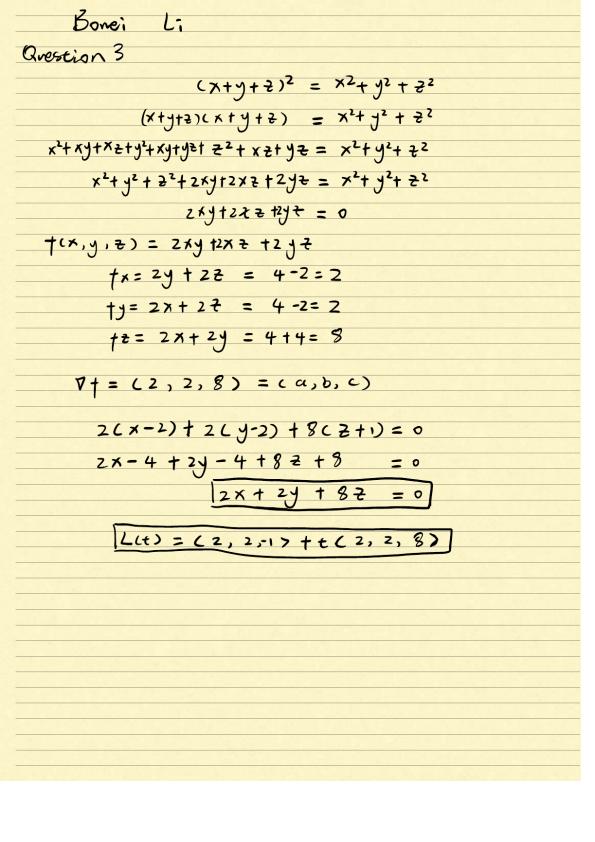 Bowei Li
Question 3
(x+y+z)² = x²+y²+z²
(x+y+z)(x+y+z) = x²+y²+z²
x²+xy+xz+y²+xy+yz+z²+xz+yz = x²+y²+z²
x²+y²+z²+2xy+2xz+2yz = x²+y²+z²
2xy+2xz+2yz = 0
f(x,y,z) = 2xy+2xz+2yz
fx = 2y+2z = 4-2=2
fy = 2x+2z = 4-2=2
fz = 2x+2y = 4+4=8
∇f = (2,2,8) = (a,b,c)
2(x-2)+2(y-2)+8(z+1)=0
2x-4+2y-4+8z+8 =0
2x+2y+8z =0
L(t) = <2,2,-1>+t<2,2,8>